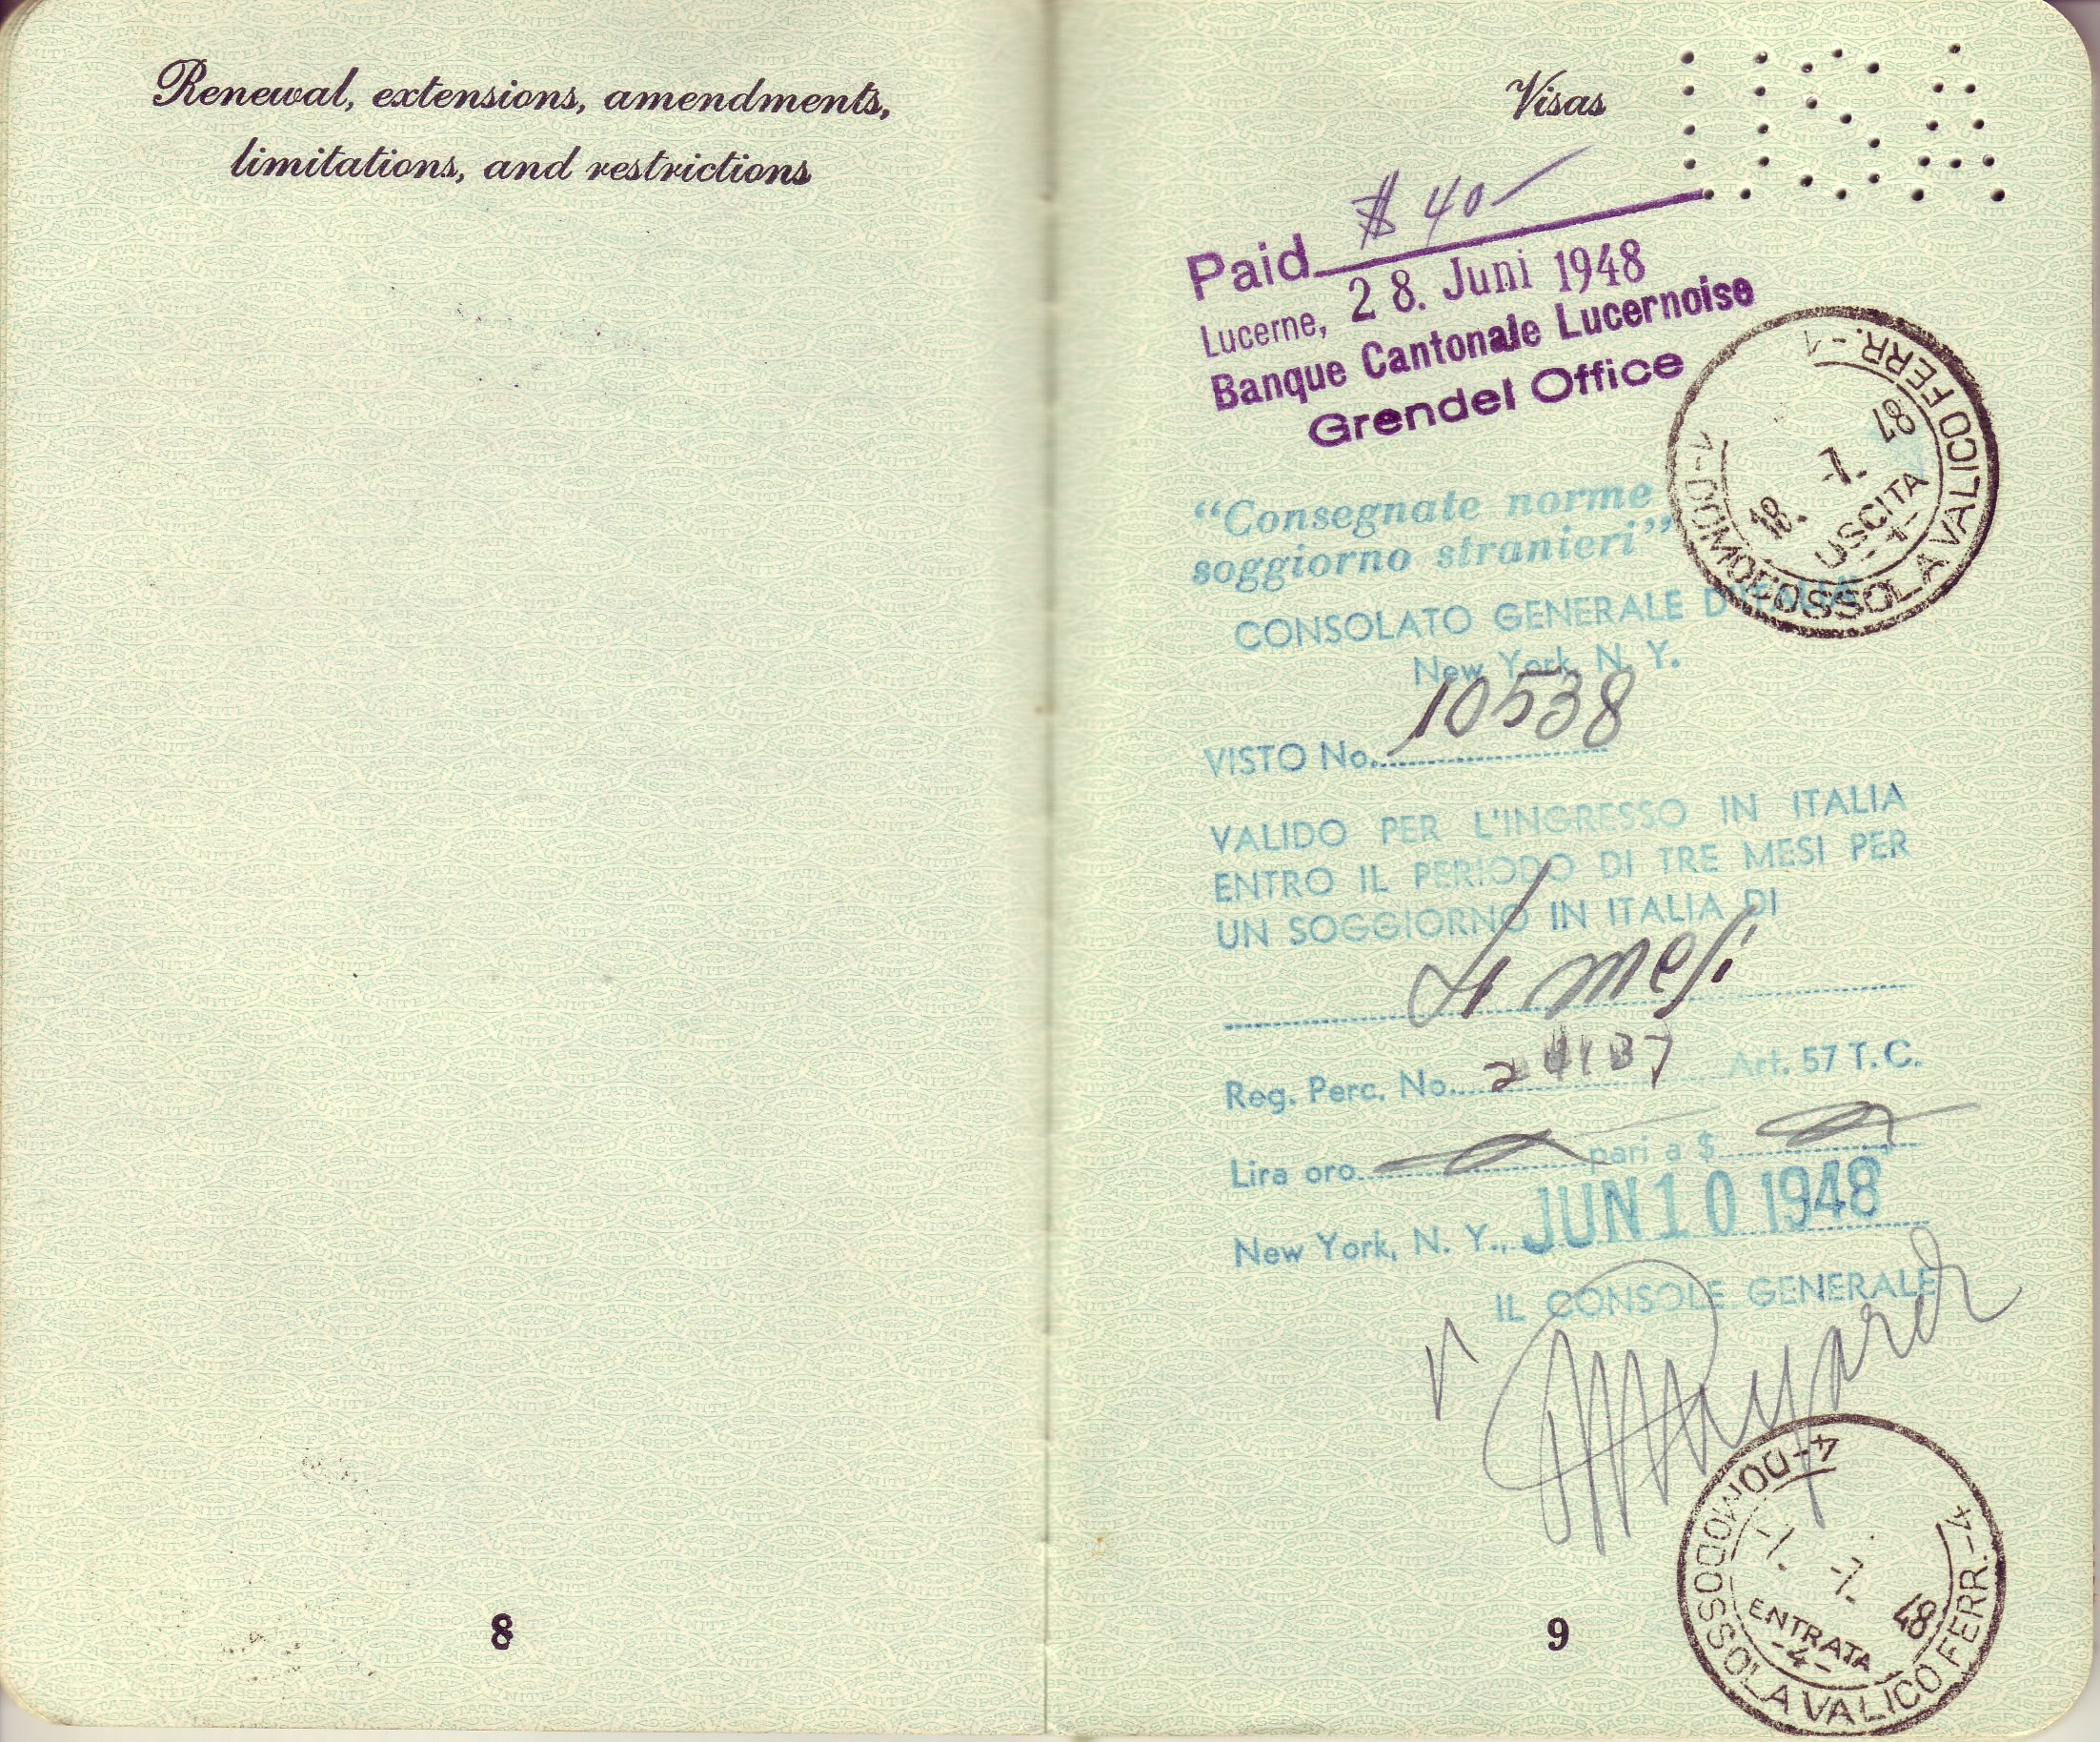 Renewal, extensions, amendments,
limitations, and restrictions
8
Visas
USA
Paid $ 40-
Lucerne, 28. Juni 1948
Banque Cantonale Lucernoise
Grendel Office
1-DOMODOSSOLA VALICO FERR.-1
18. -7. 48
USCITA
-1-
"Consegnate norme
soggiorno stranieri"
CONSOLATO GENERALE D'ITALIA
New York, N. Y.
VISTO No. 10538
VALIDO PER L'INGRESSO IN ITALIA
ENTRO IL PERIODO DI TRE MESI PER
UN SOGGIORNO IN ITALIA DI
mesi
Reg. Perc. No. 24137 Art. 57 T. C.
Lira oro pari a $
New York, N. Y., JUN 10 1948
IL CONSOLE GENERALE
4-DOMODOSSOLA VALICO FERR.-4
-1. -7. 48
ENTRATA
-4-
9